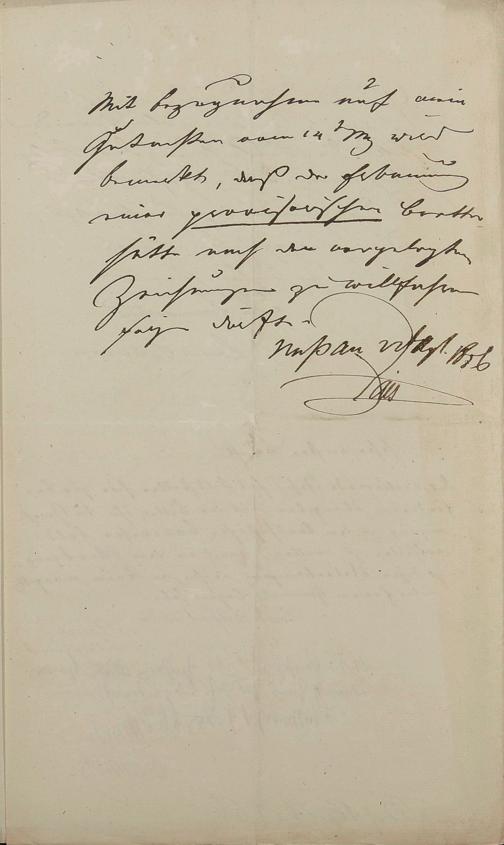 Mit bezugnahme auf mein
Gutachten vom 14t My wird
bemerkt, daß der Erbauung
einer provisorischen Bretter
hütte nach den vorgelegten
Zeichnungen zu willfahren
sein dürfte.
Naßau Spt. 1856